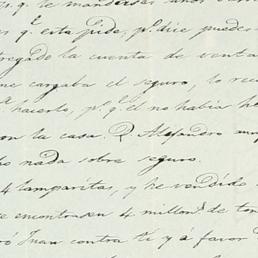 q. le mandase unos
es q. esta pide, pr. dice puedes
tregado la cuenta de venta
me cargaba el seguro, lo rec
hacerlo, pr. q. el no habia he
on la casa. D. Alejandro muy
ho nada sobre seguro.
4 lamparitas, y he vendido
se encontrasen 4 millons. de to
ró Juan contra ti y á favor d